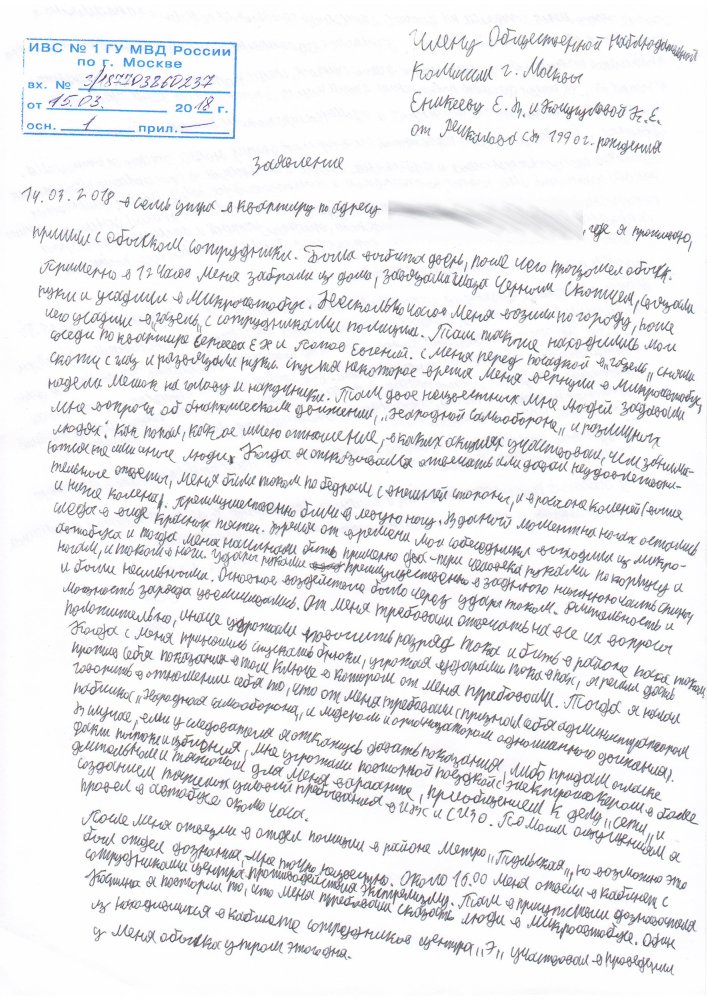 ИВС № 1 ГУ МВД России
по г. Москве
вх. № 3/187703260237
от 15.03. 2018 г.
осн. 1 прил. —
Члену Общественной Наблюдательной
Комиссии г. Москвы
Еникееву Е. В. и Е.
от 1990 г. рождения
Заявление
14.03.2018 в семь утра в квартиру по адресу , где я проживаю,
пришли с обыском сотрудники. Была выбита дверь, после чего произошел обыск.
Примерно в 12 часов меня забрали из дома, завязали глаза черным скотчем, связали
руки и усадили в микроавтобус. Несколько часов меня возили по городу, пока
не усадили в „газель" с сотрудниками полиции. Там также находились мои
соседи по квартире и Попов Евгений. С меня перед посадкой в „газель" сняли
скотч с глаз и развязали руки. Спустя некоторое время меня вернули в микроавтобус,
надели мешок на голову и наручники. Там двое неизвестных мне людей задавали
мне вопросы об анархическом движении, „Народной самообороне" и различных
людях: как попал, какое имею отношение, в каких акциях участвовал, чем занима-
ются те или иные люди. Когда я отказывался отвечать или давал неудовлетвори-
тельные ответы, меня били током по бедрам с внешней стороны, и в районе коленей (выше
и ниже колена). Преимущественно били в левую ногу. В данный момент на ногах остались
следы в виде красных пятен. Время от времени мои собеседники выходили из микро-
автобуса и тогда меня начинали бить примерно два-три человека руками по корпусу и
ногам, и током в ноги. Удары руками преимущественно в заднюю нижнюю часть спины
и были несильными. Основное воздействие было через удары током. Длительность и
мощность заряда увеличивались. От меня требовали отвечать на все их вопросы
положительно, иначе угрожали увеличить разряд тока и бить в районе паха током.
Когда с меня принялись спускать брюки, угрожая ударами тока в пах, я решил дать
против себя показания в том ключе в котором от меня требовали. Тогда я начал
говорить в отношении себя то, что от меня требовали (признал себя администратором
паблика „Народная самооборона", и лидером и организатором одноименного движения).
В случае, если у следователя я откажусь давать показания, либо придам огласке
факт пыток и избиения, мне угрожали повторной поездкой с электрошокером в более
длительном и тяжелом для меня варианте, приобщением к делу „сети", и
созданием тяжелых условий пребывания в ИВС и СИЗО. По моим ощущениям я
провел в автобусе около часа.
После меня отвезли в отдел полиции в районе метро „Тульская", но возможно это
был отдел дознания, мне точно неизвестно. Около 16.00 меня отвели в кабинет с
сотрудниками центра противодействия экстремизму. Там в присутствии дознавателя
Костина я повторил то, что меня требовали сказать люди в микроавтобусе. Один
из находящихся в кабинете сотрудников центра „Э" участвовал в проведении
у меня обыска утром этого дня.